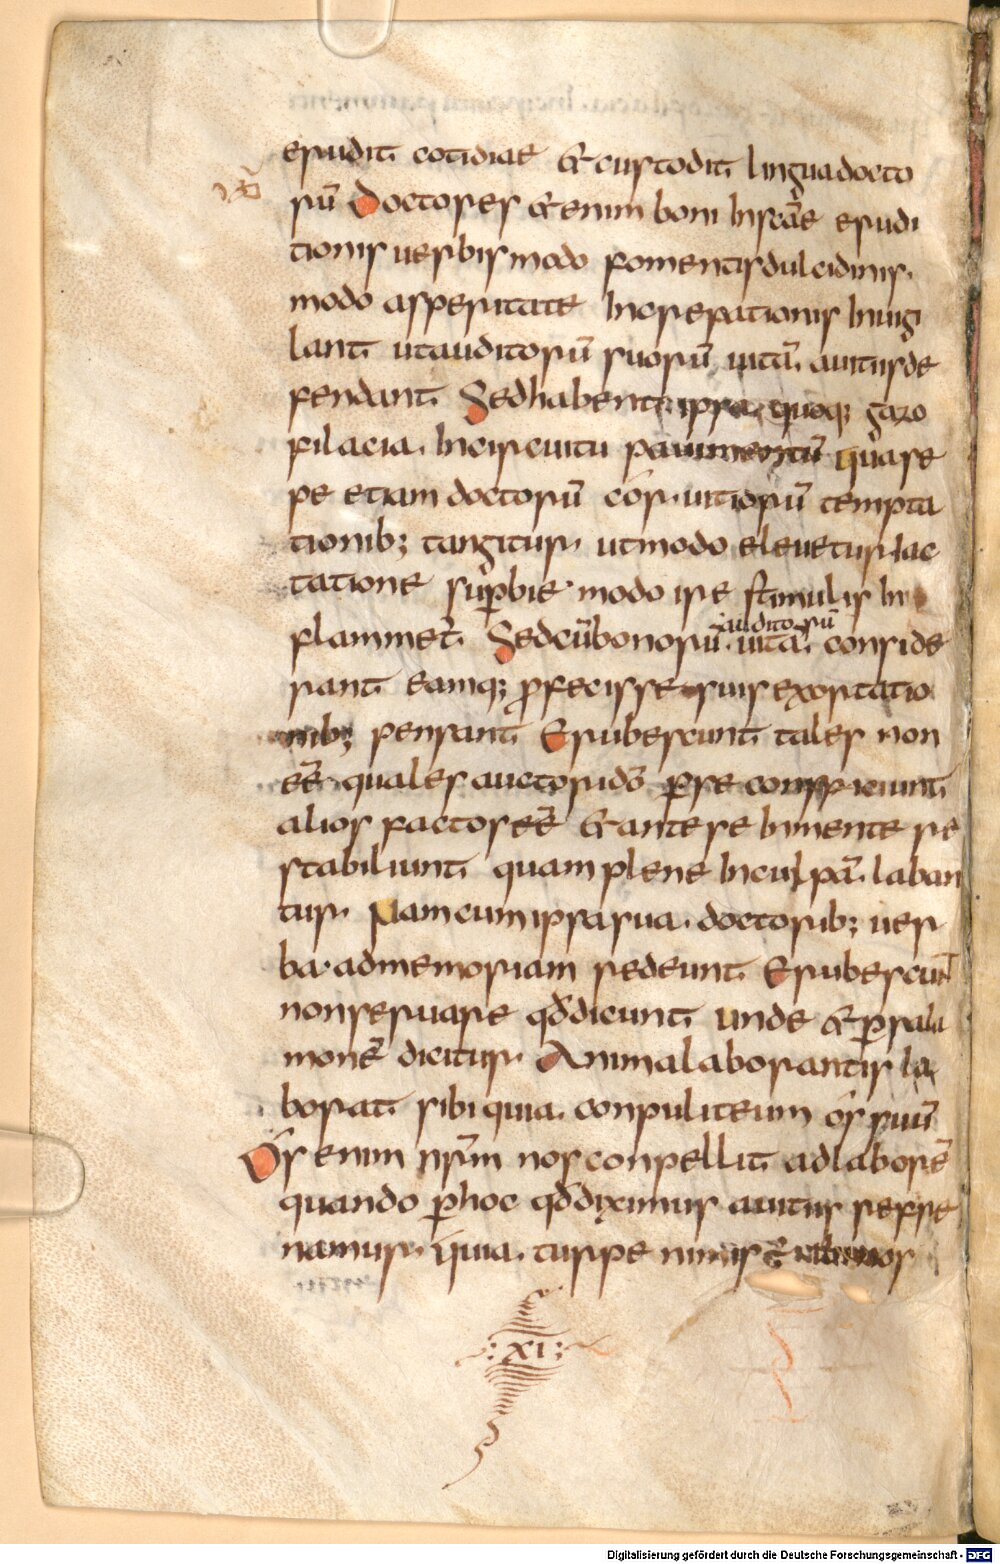 erudit cotidiae & custodit linguadocto
rū Doctores & enim boni Inscāe erudi
tionis uerbis modo fomentis dulcidinis.
modo asperitate Increpationis Inuigi
lant utauditorū suorū uitā auitiisde
fendant Sed habent ipsa quoq; gazo
filacia. Incircuitu pauimentū quare
pe etiam doctorū cōr. uitiorū tempta
tionib; tangitur. ut modo eleuetur iac
tatione supbie modo ire stimulis In
auditorū
flammet̄. Sedcūbonorū uitā conside
rant eamq; pfecisse suis exortatio
nib; pensant Erubescunt tales non
eē quales auctorid̄o pse conspiciunt
alios factos eē & ante se Inmente se
stabiliunt quam plene Inculpā. laban
tur. Nam cum ipsa sua. doctorib; uer
ba. admemoriam redeunt Erubescunt
non seruare qd̄dicunt unde & psala
monē dicitur. Anima laborantis la
borat sibi quia. conpuliteum ós suū
Ós enim nr̄m nos conpellit adlaborē
quando phoc qd̄diximus auitiis refre
namur. quia. turpe nimis ē
: XI :
Digitalisierung gefördert durch die Deutsche Forschungsgemeinschaft - DFG